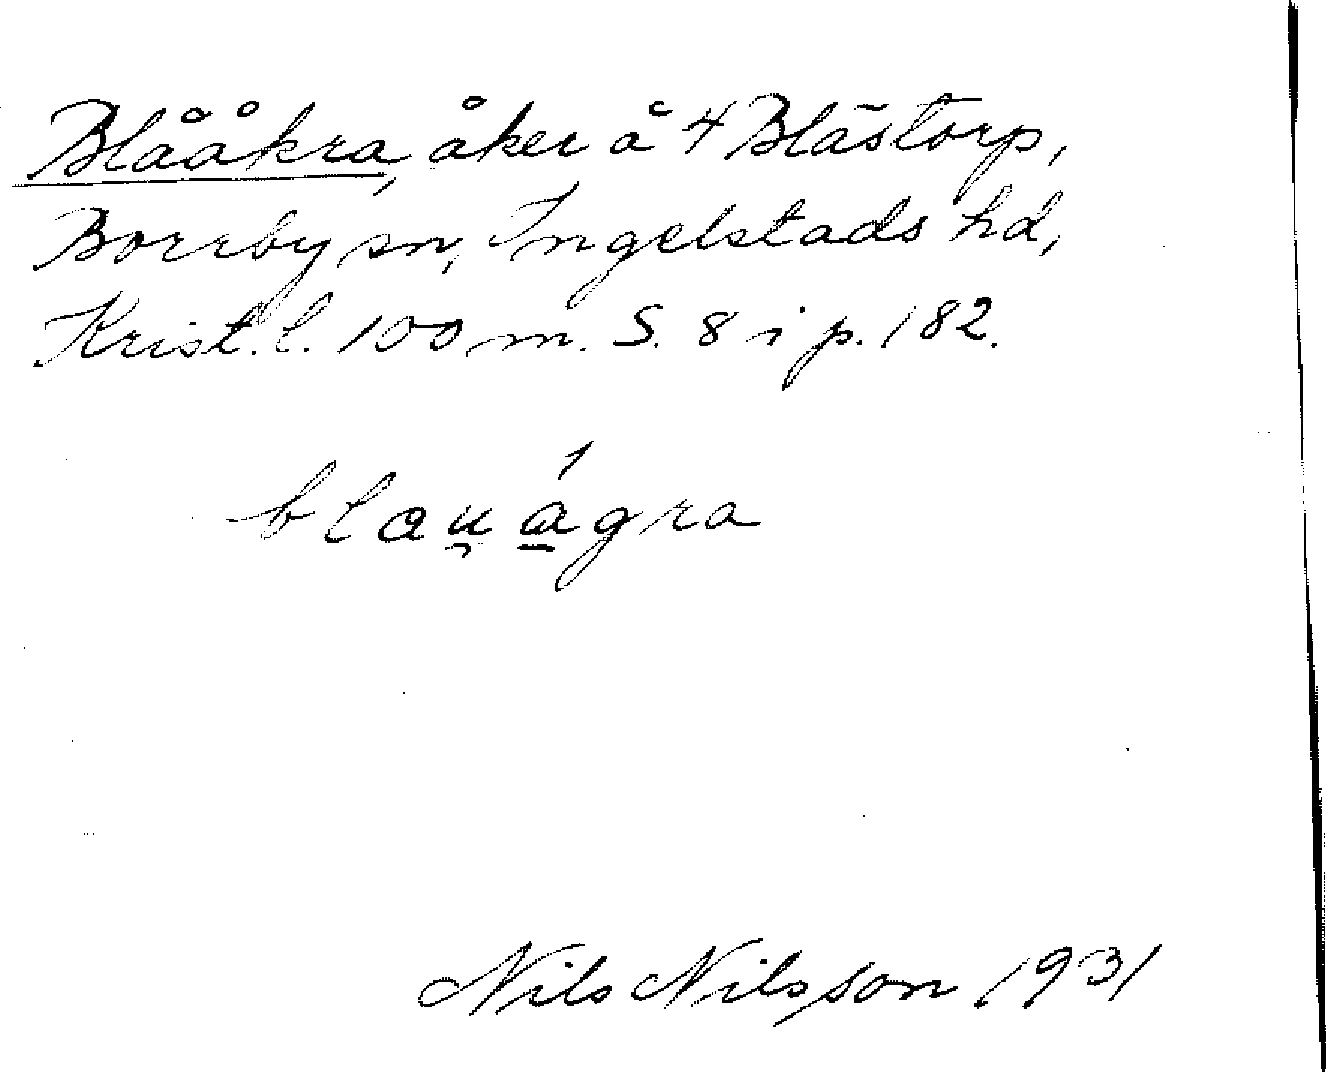 Blååkra, åker å 4 Blästorp,
Borrby sn, Ingelstads hd,
Krist. l. 100 m. S. 8 i p. 182.
blau̯á̱gra
Nils Nilsson 1931